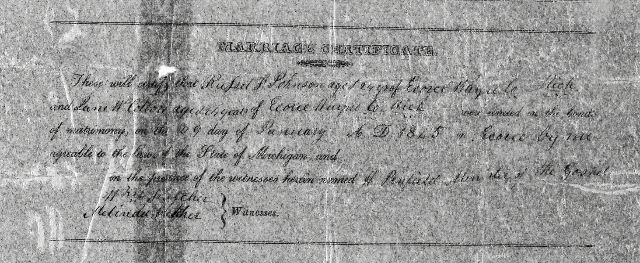 MARRIAGE CERTIFICATE.
These will certify that Russel J. Johnson aged 24 yrs of Ecorce Wayne Co Mich
and Jane W. aged years of Ecorce Wayne Co. Mich were united in the bonds
of matrimony, on the 29 day of January A. D. 1865 Ecorce by me
agreeable to the laws of the State of Michigan, and
in the presence of the witnesses hereon named Penfield Minister of The Gospel
Wm
Melinda
Witnesses.